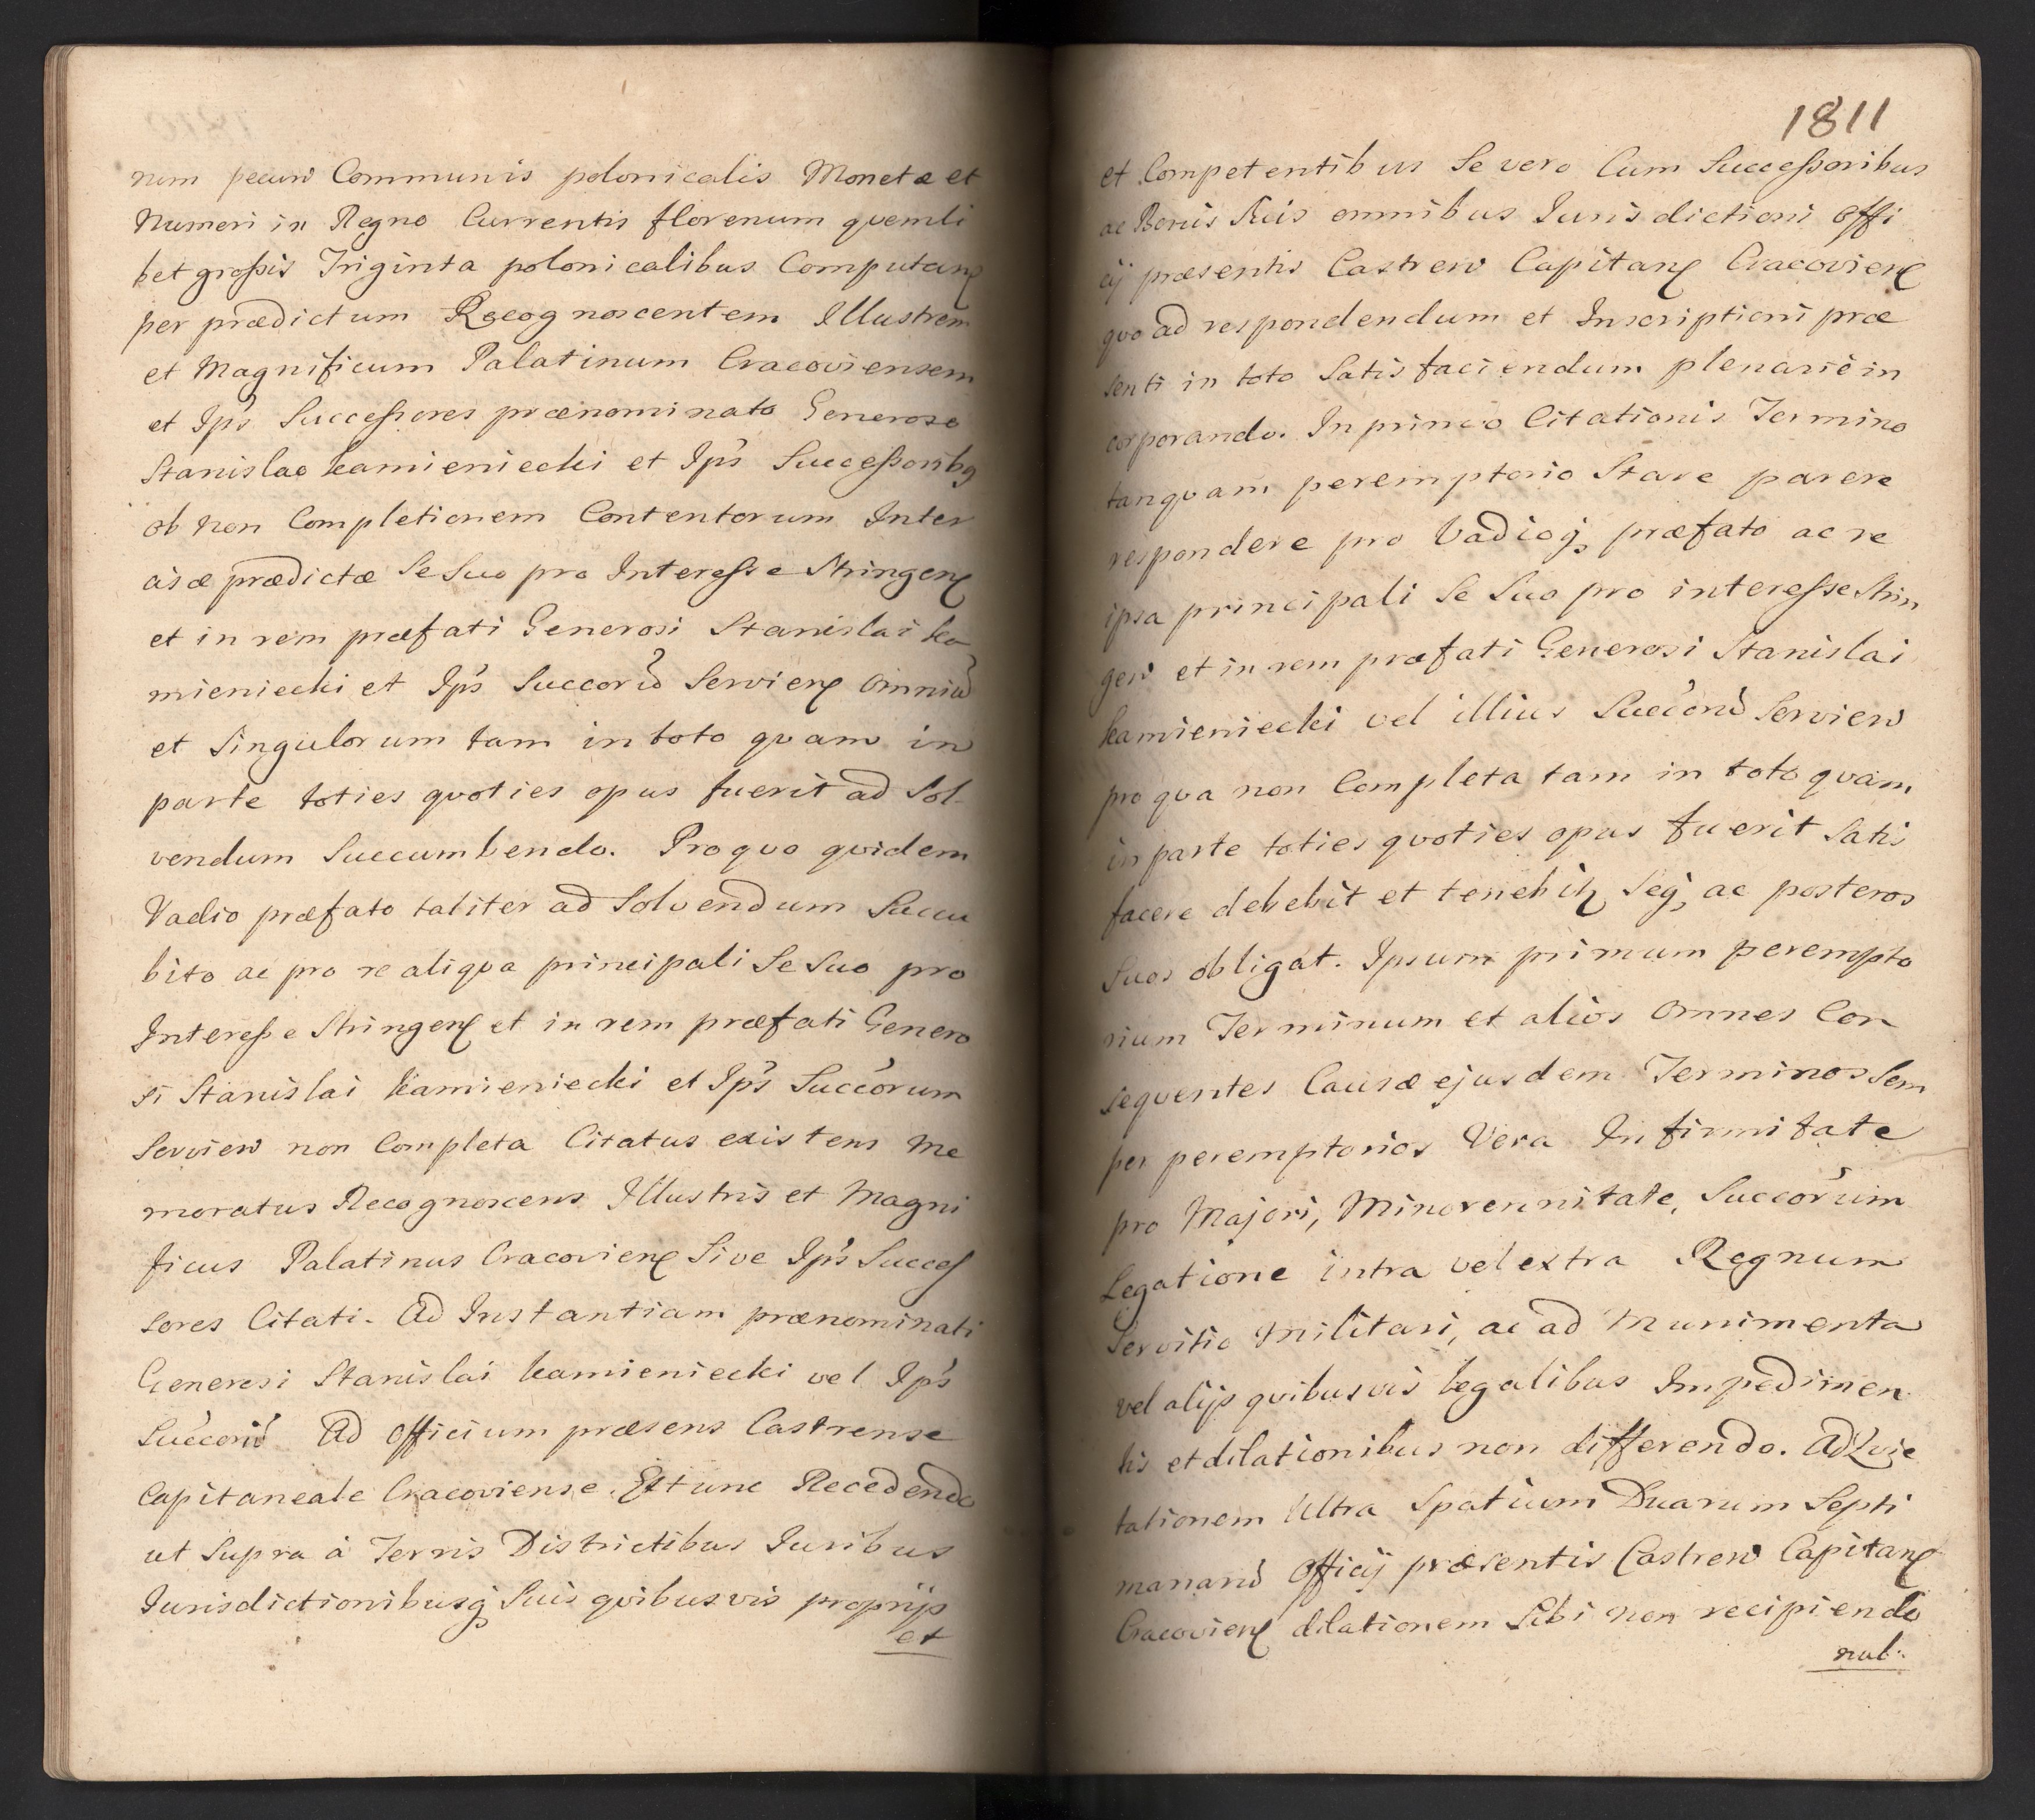 num pecun Communis polonicalis Monetæ et
Numeri in Regno Currentis florenum quemli
bet grossis Triginta polonicalibus Computan
per prædictum Recognoscentem Illustrem
et Magnificum Palatinum Cracoviensem
et Ips Successores prænominato Generoso
Stanislao Kamieniecki et Ips Successoribq
ob non Completionem Contentorum Inter
cisæ prædictæ Se Suo pro Interesse Stringen
et in rem præfati Generosi Stanislai Ka
mieniecki et Ips Succorū Servien Omniū
et Singulorum tam in toto quam in
parte toties quoties opus fuerit ad Sol-
vendum Succumbendo. Pro quo quidem
Vadio præfato taliter ad Solvendum Succu
bito ac pro re aliqua principali Se Suo pro
Interesse Stringen et in rem præfati Genero
si Stanislai Kamieniecki et Ips Succorum
Servien non Completa Citatus existens Me
moratus Recognoscens Illustris et Magni
ficus Palatinus Cracovien Sive Ips Succes
sores Citati. Ad Instantiam prænominati
Generosi Stanislai Kamieniecki vel Ips
Succorū Ad Officium præsens Castrense
Capitaneale Cracoviense. Et tunc Recedendo
ut Supra à Terris Districtibus Iuribus
Iurisdictionibusq Suis quibusvis proprijs
et
1811
et Competentibus Se vero Cum Successoribus
ac Bonis Suis omnibus Iurisdictioni Offi
cij præsentis Castren Capitan Cracovien
quo ad respondendum et Inscriptioni præ
senti in toto Satisfaciendum plenarie in
corporando. In primo Citationis Termino
tanquam peremptorio Stare parere
respondere pro Vadioq præfato ac re
ipsa principali Se Suo pro interesse Strin
gen et in rem præfati Generosi Stanislai
Kamieniecki vel illius Succorū Servien
pro qua non Completa tam in toto quam
in parte toties quoties opus fuerit Satis
facere debebit et tenebit Seq ac posteros
Suos obligat. Ipsum primum perempto
rium Terminum et alios Omnes Con
sequentes Causæ ejusdem Terminos Sem
per peremptorios Vera Infirmitate
pro Majori, Minorennitate, Succorum
Legatione intra vel extra Regnum
Servitio Militari, ac ad Munimenta
vel alijs quibusvis legalibus Impedimen
tis et dilationibus non differendo. Ad Luie
tationem Ultra Spatium Duarum Septi
manarū Officij præsentis Castren Capitan
Cracovien dilationem Sibi non recipiendo
nul.